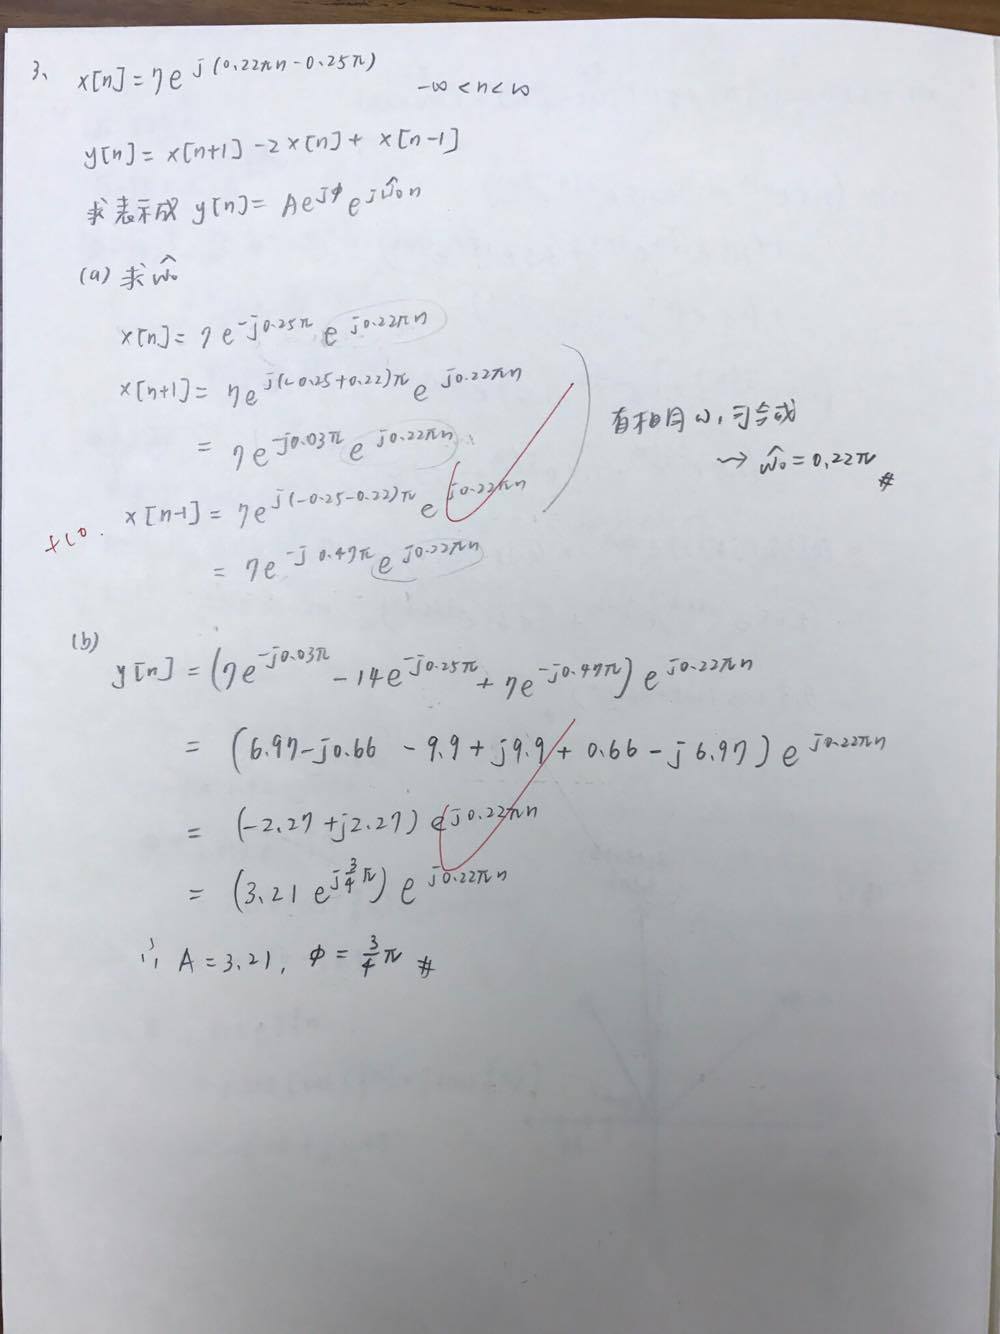 3、 x[n] = 7e^{j(0.22πn-0.25π)} -∞<n<∞
y[n] = x[n+1] -2x[n] + x[n-1]
求表示成 y[n] = Ae^{jφ} e^{jŵ₀n}
(a) 求 ŵ₀
x[n] = 7e^{-j0.25π} e^{j0.22πn}
x[n+1] = 7e^{j(-0.25+0.22)π} e^{j0.22πn}
= 7e^{-j0.03π} e^{j0.22πn}
有相同ω, 可合成
→ ŵ₀ = 0.22π #
x[n-1] = 7e^{j(-0.25-0.22)π} e^{j0.22πn}
+10.
= 7e^{-j0.47π} e^{j0.22πn}
(b)
y[n] = (7e^{-j0.03π} - 14e^{-j0.25π} + 7e^{-j0.47π}) e^{j0.22πn}
= (6.97-j0.66 -9.9+j9.9+0.66-j6.97) e^{j0.22πn}
= (-2.27+j2.27) e^{j0.22πn}
= (3.21 e^{j3/4π}) e^{j0.22πn}
∴ A = 3.21, φ = 3/4π #